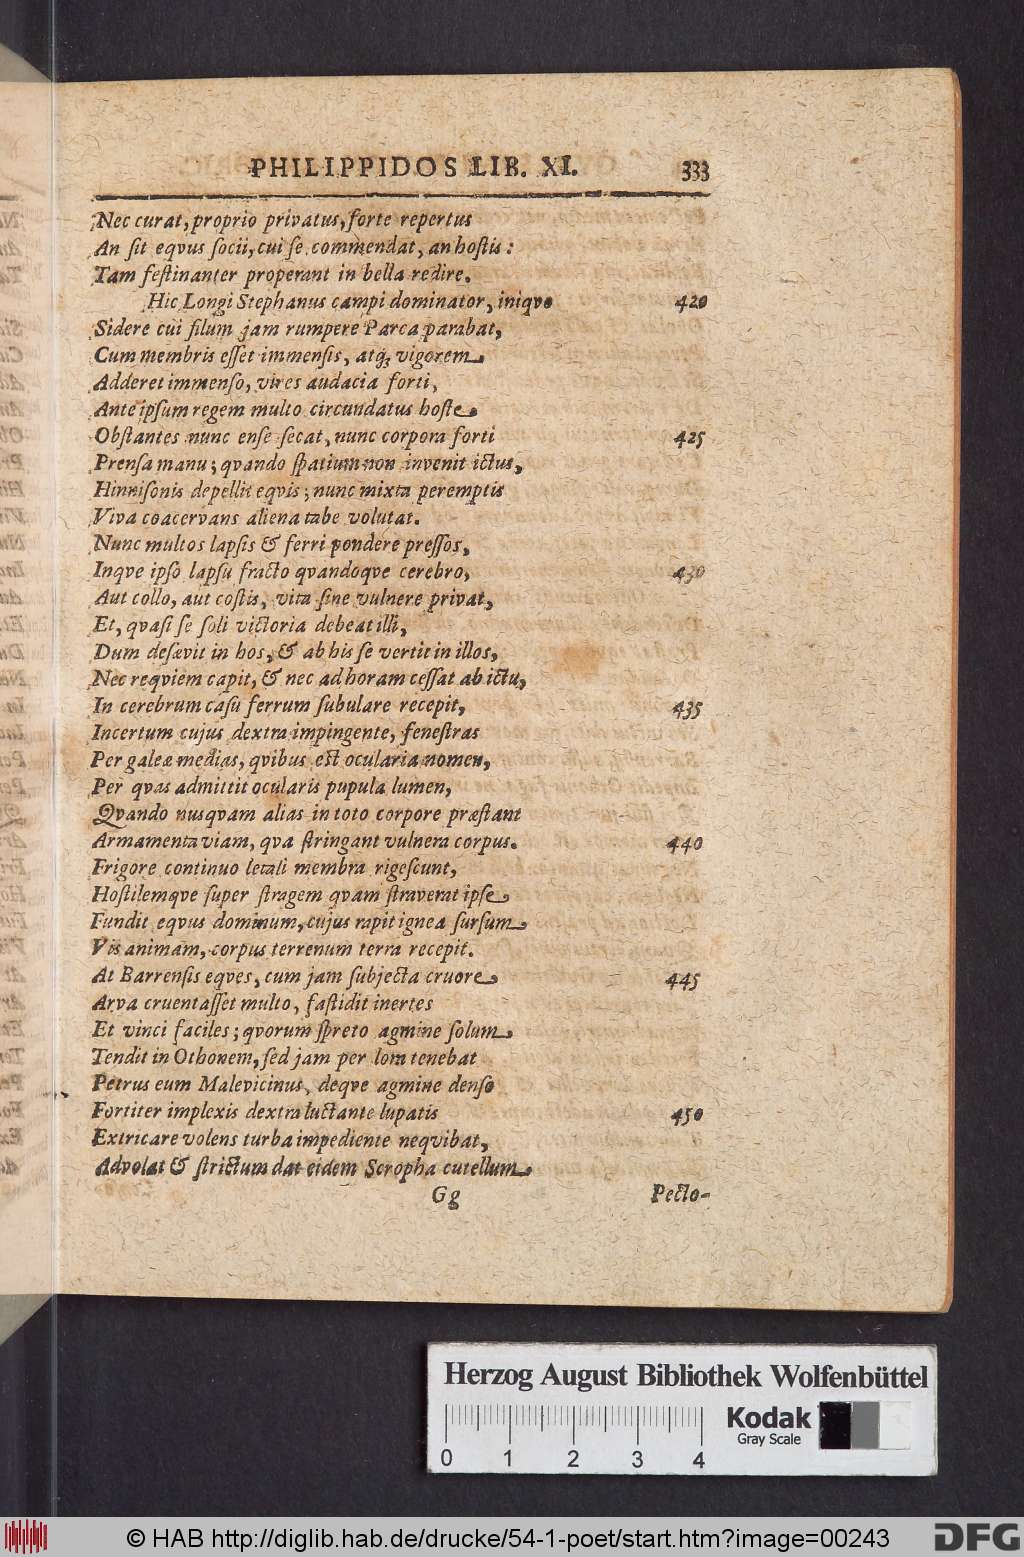 PHILIPPIDOS LIB. XI. 333
Nec curat, proprio privatus, forte repertus
An ſit eqvus ſocii, cui ſe commendat, an hoſtis:
Tam feſtinanter properant in bella redire.
Hic Longi Stephanus campi dominator, iniqvo 420
Sidere cui filum jam rumpere Parca parabat,
Cum membris eſſet immenſis, atq; vigorem
Adderet immenſo, vires audacia forti,
Ante ipſum regem multo circundatus hoſte
Obſtantes nunc enſe ſecat, nunc corpora forti 425
Prenſa manu; qvando ſpatium non invenit ictus,
Hinniſonis depellit eqvis; nunc mixta peremptis
Viva coacervans aliena tabe volutat.
Nunc multos lapſis & ferri pondere preſſos,
Inqve ipſo lapſu fracto qvandoqve cerebro, 430
Aut collo, aut coſtis, vita ſine vulnere privat,
Et, qvaſi ſe ſoli victoria debeat illi,
Dum deſævit in hos, & ab his ſe vertit in illos,
Nec reqviem capit, & nec ad horam ceſſat ab ictu,
In cerebrum caſu ferrum ſubulare recepit, 435
Incertum cujus dextra impingente, feneſtras
Per galeæ medias, qvibus eſt ocularia nomen,
Per qvas admittit ocularis pupula lumen,
Qvando nusqvam alias in toto corpore præſtant
Armamenta viam, qva ſtringant vulnera corpus. 440
Frigore continuo letali membra rigeſcunt,
Hoſtilemqve ſuper ſtragem qvam ſtraverat ipſe
Fundit eqvus dominum, cujus rapit ignea ſurſum
Vis animam, corpus terrenum terra recepit.
At Barrenſis eqves, cum jam ſubjecta cruore 445
Arva cruentaſſet multo, faſtidit inertes
Et vinci faciles; qvorum ſpreto agmine ſolum
Tendit in Othonem, ſed jam per lora tenebat
Petrus eum Malevicinus, deqve agmine denſo
Fortiter implexis dextra luctante lupatis 450
Extricare volens turba impediente neqvibat,
Advolat & ſtrictum dat eidem Scropha cutellum
Gg Pecto-
Herzog August Bibliothek Wolfenbüttel
0 1 2 3 4
Kodak
Gray Scale
© HAB http://diglib.hab.de/drucke/54-1-poet/start.htm?image=00243
DFG